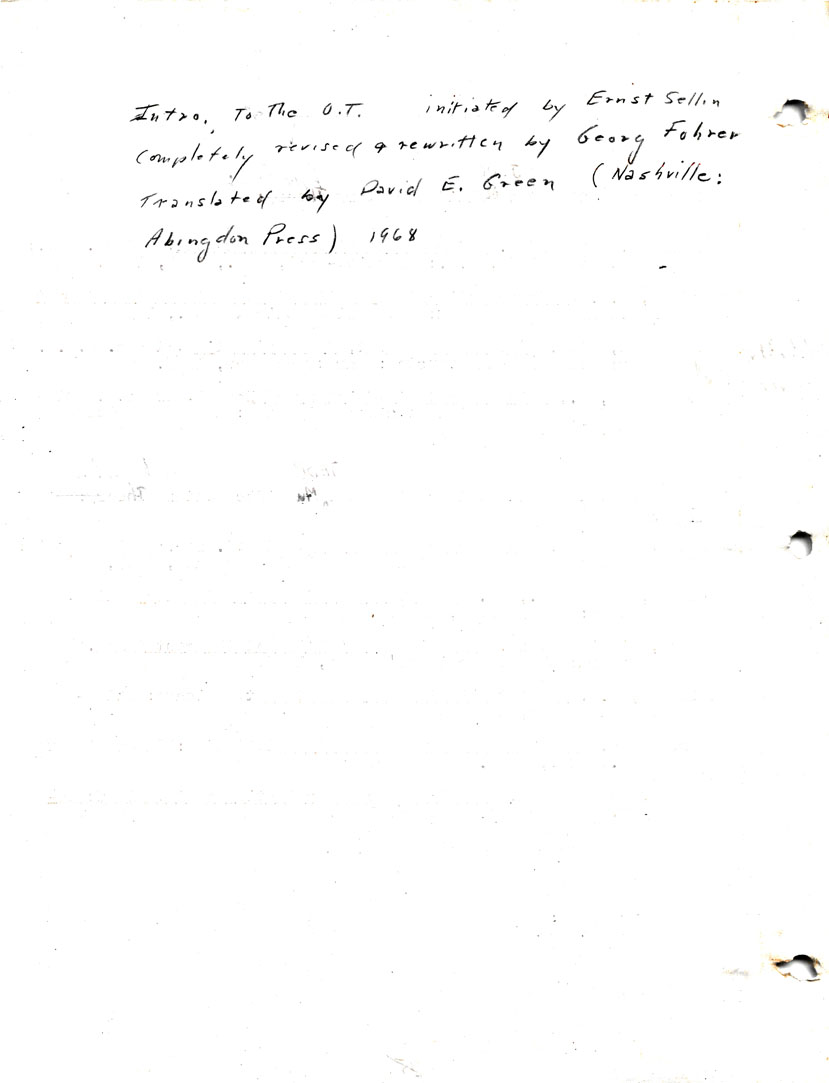 Intro. To The O.T. initiated by Ernst Sellin
completely revised & rewritten by Georg Fohrer
Translated by David E. Green (Nashville:
Abingdon Press) 1968